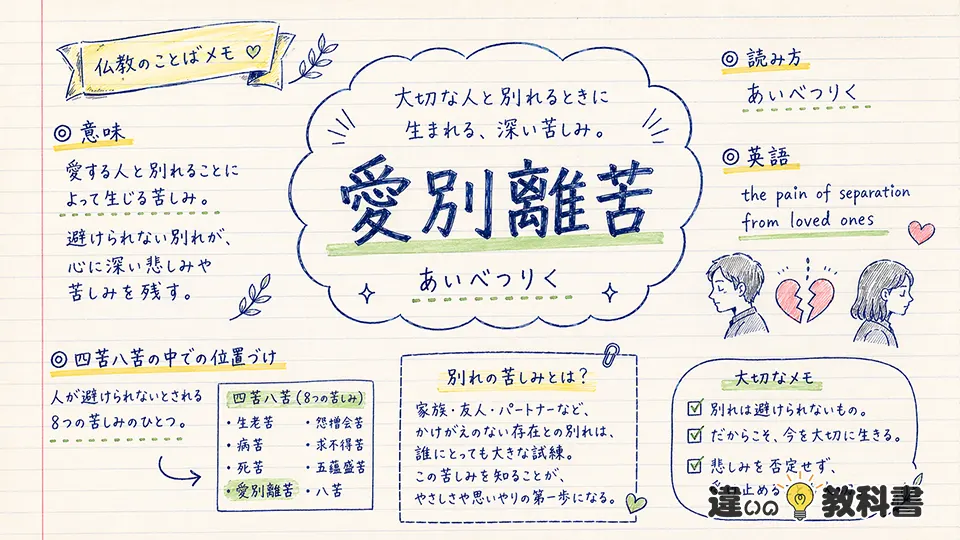 仏教のことばメモ
◎ 意味
愛する人と別れることに
よって生じる苦しみ。
避けられない別れが、
心に深い悲しみや
苦しみを残す。
大切な人と別れるときに
生まれる、深い苦しみ。
愛別離苦
あいべつりく
◎ 読み方
あいべつりく
◎ 英語
the pain of separation
from loved ones
◎ 四苦八苦の中での位置づけ
人が避けられないとされる
8つの苦しみのひとつ。
四苦八苦(8つの苦しみ)
・生老苦
・病苦
・死苦
・愛別離苦
・怨憎会苦
・求不得苦
・五蘊盛苦
・八苦
別れの苦しみとは?
家族・友人・パートナーなど、
かけがえのない存在との別れは、
誰にとっても大きな試練。
この苦しみを知ることが、
やさしさや思いやりの第一歩になる。
大切なメモ
別れは避けられないもの。
だからこそ、今を大切に生きる。
悲しみを否定せず、
止める
違いの教科書